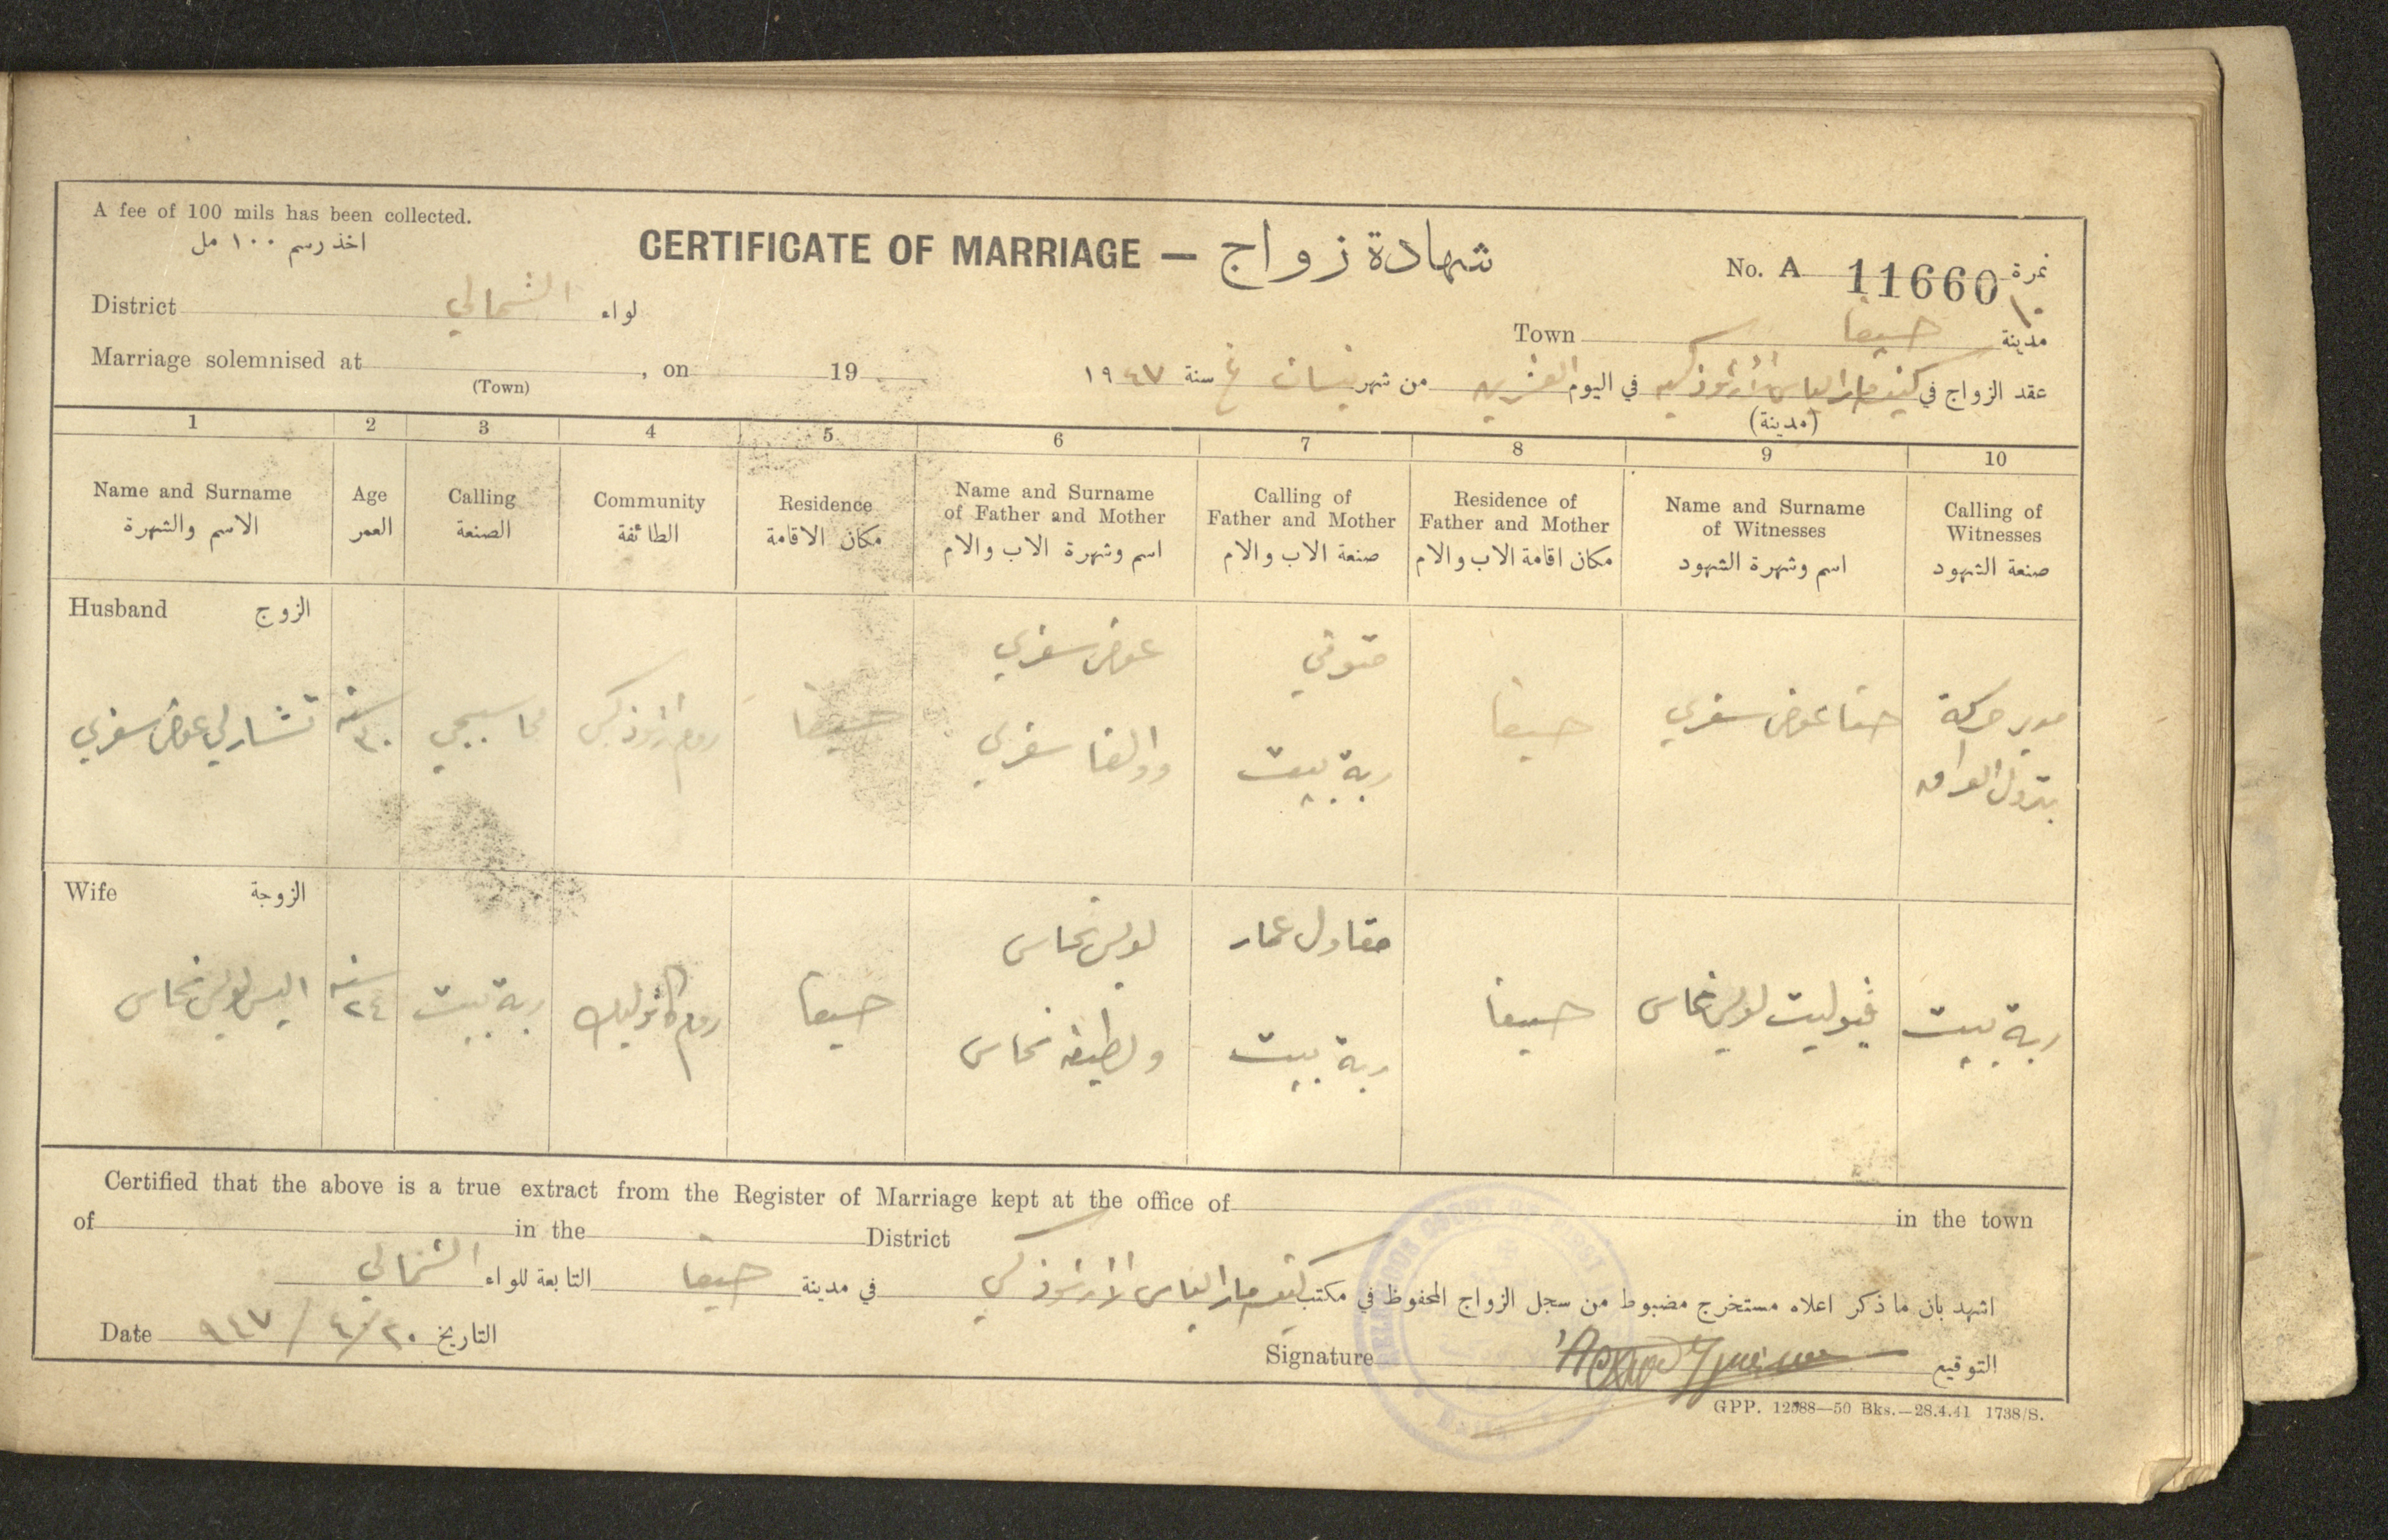 A fee of 100 mils has been collected.
اخذ رسم ١٠٠ مل
CERTIFICATE OF MARRIAGE — شهادة زواج
No. A 11660 نمرة
District الشمالي لواء
Town حيفا مدينة
Marriage solemnised at , on 19
(Town)
عقد الزواج في كنيسة مار الياس الارثوذكسية في اليوم العشرين من شهر نيسان سنة ١٩٤٧
(مدينة)
1 2 3 4 5 6 7 8 9 10
Name and Surname
الاسم والشهرة
Age
العمر
Calling
الصنعة
Community
الطائفة
Residence
مكان الاقامة
Name and Surname
of Father and Mother
اسم وشهرة الاب والام
Calling of
Father and Mother
صنعة الاب والام
Residence of
Father and Mother
مكان اقامة الاب والام
Name and Surname
of Witnesses
اسم وشهرة الشهود
Calling of
Witnesses
صنعة الشهود
Husband الزوج
تشارلي عوض سفري
سنة
٣٠
محاسبجي
روم ارثوذكس
حيفا
عوض سفري
وولفا سفري
متوفي
ربة بيت
حيفا
حنا عوض سفري
مدير حركة
بترول العراق
Wife الزوجة
اليس لويس نحاس
سنة
٢٤
ربة بيت
روم كاثوليك
حيفا
لويس نحاس
ولطيفة نحاس
مقاول عمار
ربة بيت
حيفا
فيوليت لويس نحاس
ربة بيت
Certified that the above is a true extract from the Register of Marriage kept at the office of in the town
of in the District
اشهد بان ما ذكر اعلاه مستخرج مضبوط من سجل الزواج المحفوظ في مكتب كنيسة مار الياس الارثوذكسي في مدينة حيفا التابعة للواء الشمالي
Date ٢٠/٤/٩٤٧ التاريخ
Signature التوقيع
GPP. 12588—50 Bks.—28.4.41 1738/S.